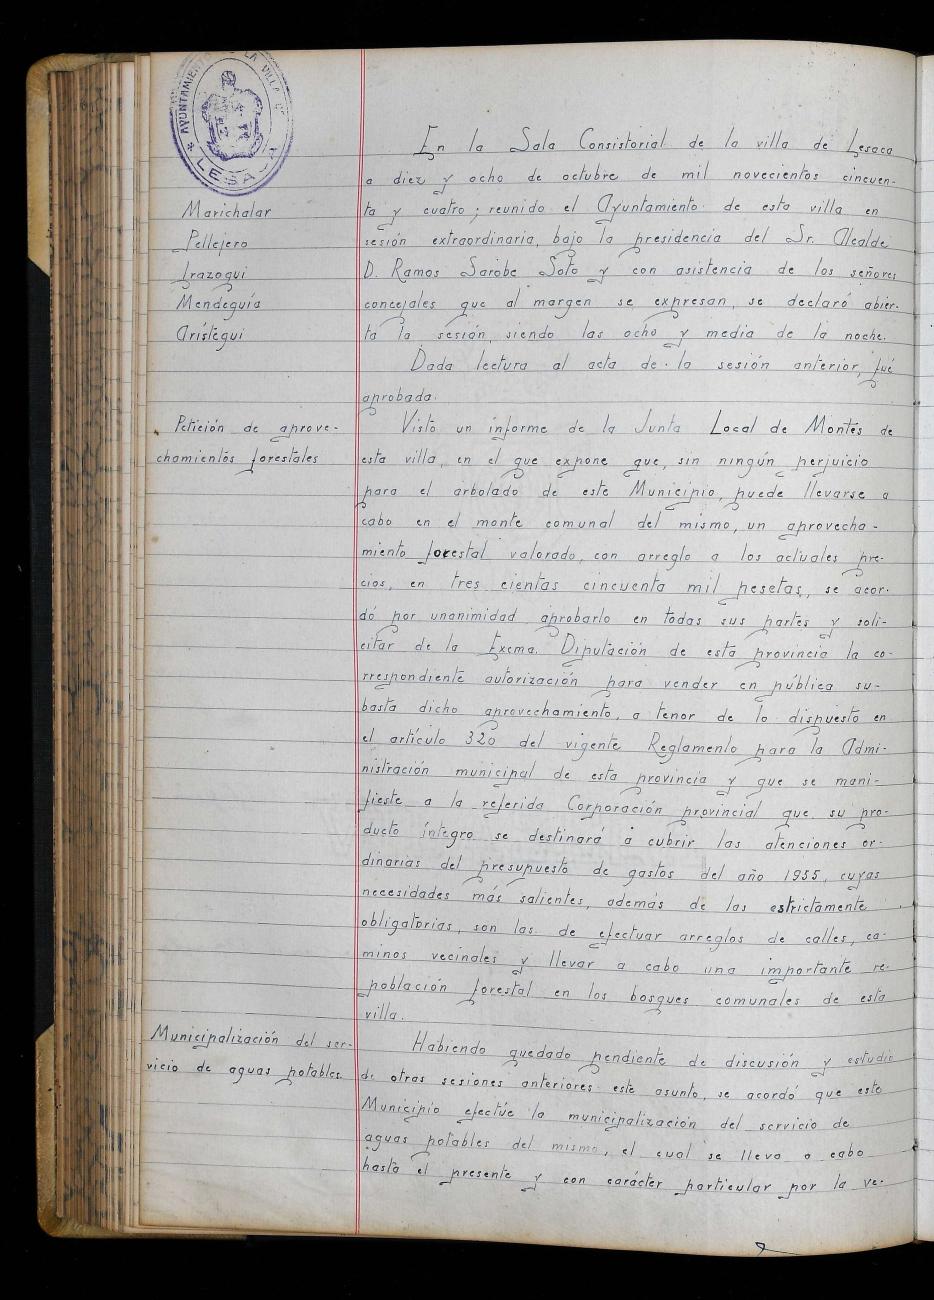 AYUNTAMIENTO DE LA VILLA DE
LESACA
En la Sala Consistorial de la villa de Lesaca
a diez y ocho de octubre de mil novecientos cincuen-
Marichalar
ta y cuatro; reunido el Ayuntamiento de esta villa en
Pellejero
sesión extraordinaria, bajo la presidencia del Sr. Alcalde
Irazoqui
D. Ramos Sarobe Soto y con asistencia de los señores
Mendeguía
concejales que al margen se expresan, se declaró abier-
Arístegui
ta la sesión, siendo las ocho y media de la noche.
Dada lectura al acta de la sesión anterior, fué
aprobada.
Petición de aprove-
chamientos forestales
Visto un informe de la Junta Local de Montes de
esta villa, en el que expone que, sin ningún perjuicio
para el arbolado de este Municipio, puede llevarse a
cabo en el monte comunal del mismo, un aprovecha-
miento forestal valorado, con arreglo a los actuales pre-
cios, en tres cientas cincuenta mil pesetas, se acor-
dó por unanimidad aprobarlo en todas sus partes y soli-
citar de la Excma. Diputación de esta provincia la co-
rrespondiente autorización para vender en pública su-
basta dicho aprovechamiento, a tenor de lo dispuesto en
el artículo 320 del vigente Reglamento para la Admi-
nistración municipal de esta provincia y que se mani-
fieste a la referida Corporación provincial que su pro-
ducto íntegro se destinará a cubrir las atenciones or-
dinarias del presupuesto de gastos del año 1955, cuyas
necesidades más salientes, además de las estrictamente
obligatorias, son las de efectuar arreglos de calles, ca-
minos vecinales y llevar a cabo una importante re-
población forestal en los bosques comunales de esta
villa.
Municipalización del ser-
vicio de aguas potables.
Habiendo quedado pendiente de discusión y estudio
de otras sesiones anteriores este asunto, se acordó que este
Municipio efectúe la municipalización del servicio de
aguas potables del mismo, el cual se lleva a cabo
hasta el presente y con carácter particular por la ve-